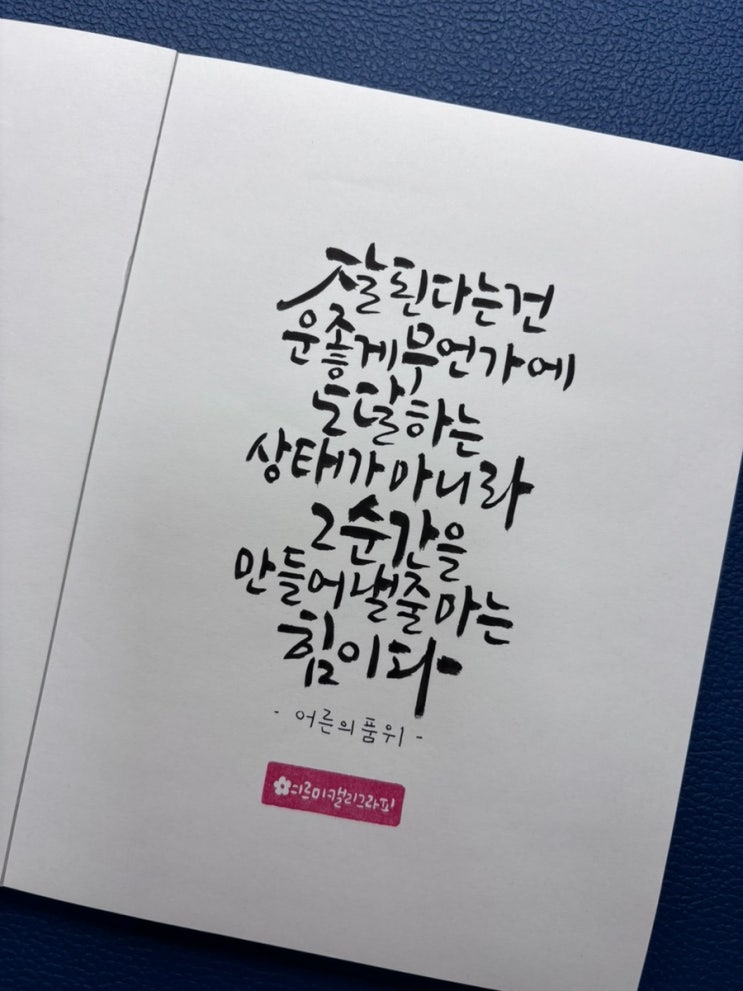 잘 된다는 건
운좋게 무언가에
도달하는
상태가 아니라
그 순간을
만들어낼 줄 아는
힘이다
- 어른의 품위 -
캘리그라피